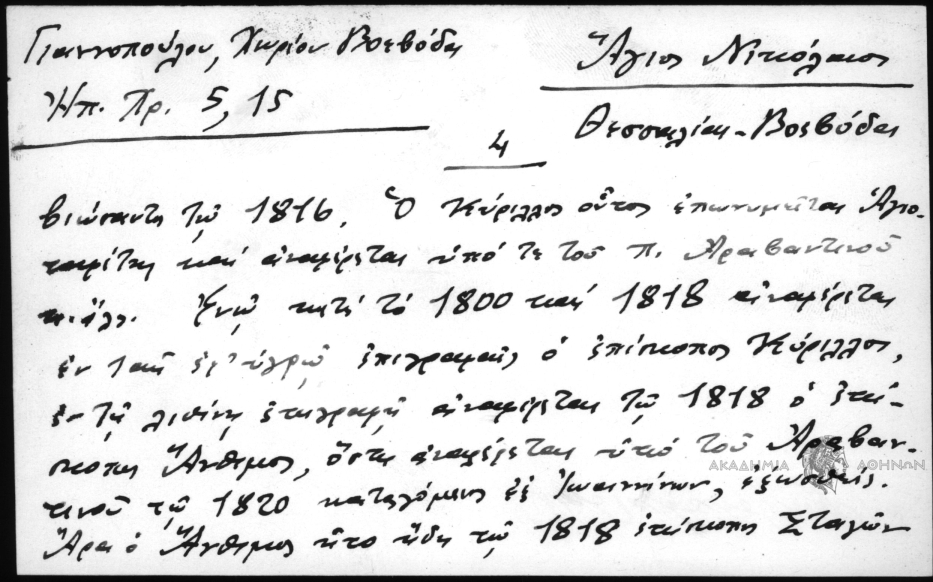 Γιαννοπούλου, Χωρίον Βοεβόδα
Ἠπ. Χρ. 5, 15
Ἅγιος Νικόλαος
Θεσσαλίας - Βοεβόδα
4
βιώσαντος τῷ 1816. Ὁ Κύριλλος οὗτος ἐπωνυμεῖται Ἁγιο-
ταφίτης καὶ ἀναφέρεται ὑπό τε τοῦ Π. Ἀραβαντινοῦ
κ. ἄλλ. Ἐνῷ κατὰ τὸ 1800 καὶ 1818 ἀναφέρεται
ἐν ταῖς ἐν ὑγρῷ ἐπιγραφαῖς ὁ ἐπίσκοπος Κύριλλος,
ἐν τῇ λιθίνῃ ἐπιγραφῇ ἀναφέρεται τῷ 1818 ὁ ἐπί-
σκοπος Ἄνθιμος, ὅστις ἀναφέρεται ὑπό τοῦ Ἀραβαν-
τινοῦ τῷ 1820 καταγόμενος ἐξ Ἰωαννίνων, ἐξωσθείς.
Ἄρα ὁ Ἄνθιμος ἦτο ἤδη τῷ 1818 ἐπίσκοπος Σταγῶν
ΑΚΑΔΗΜΙΑ ΑΘΗΝΩΝ